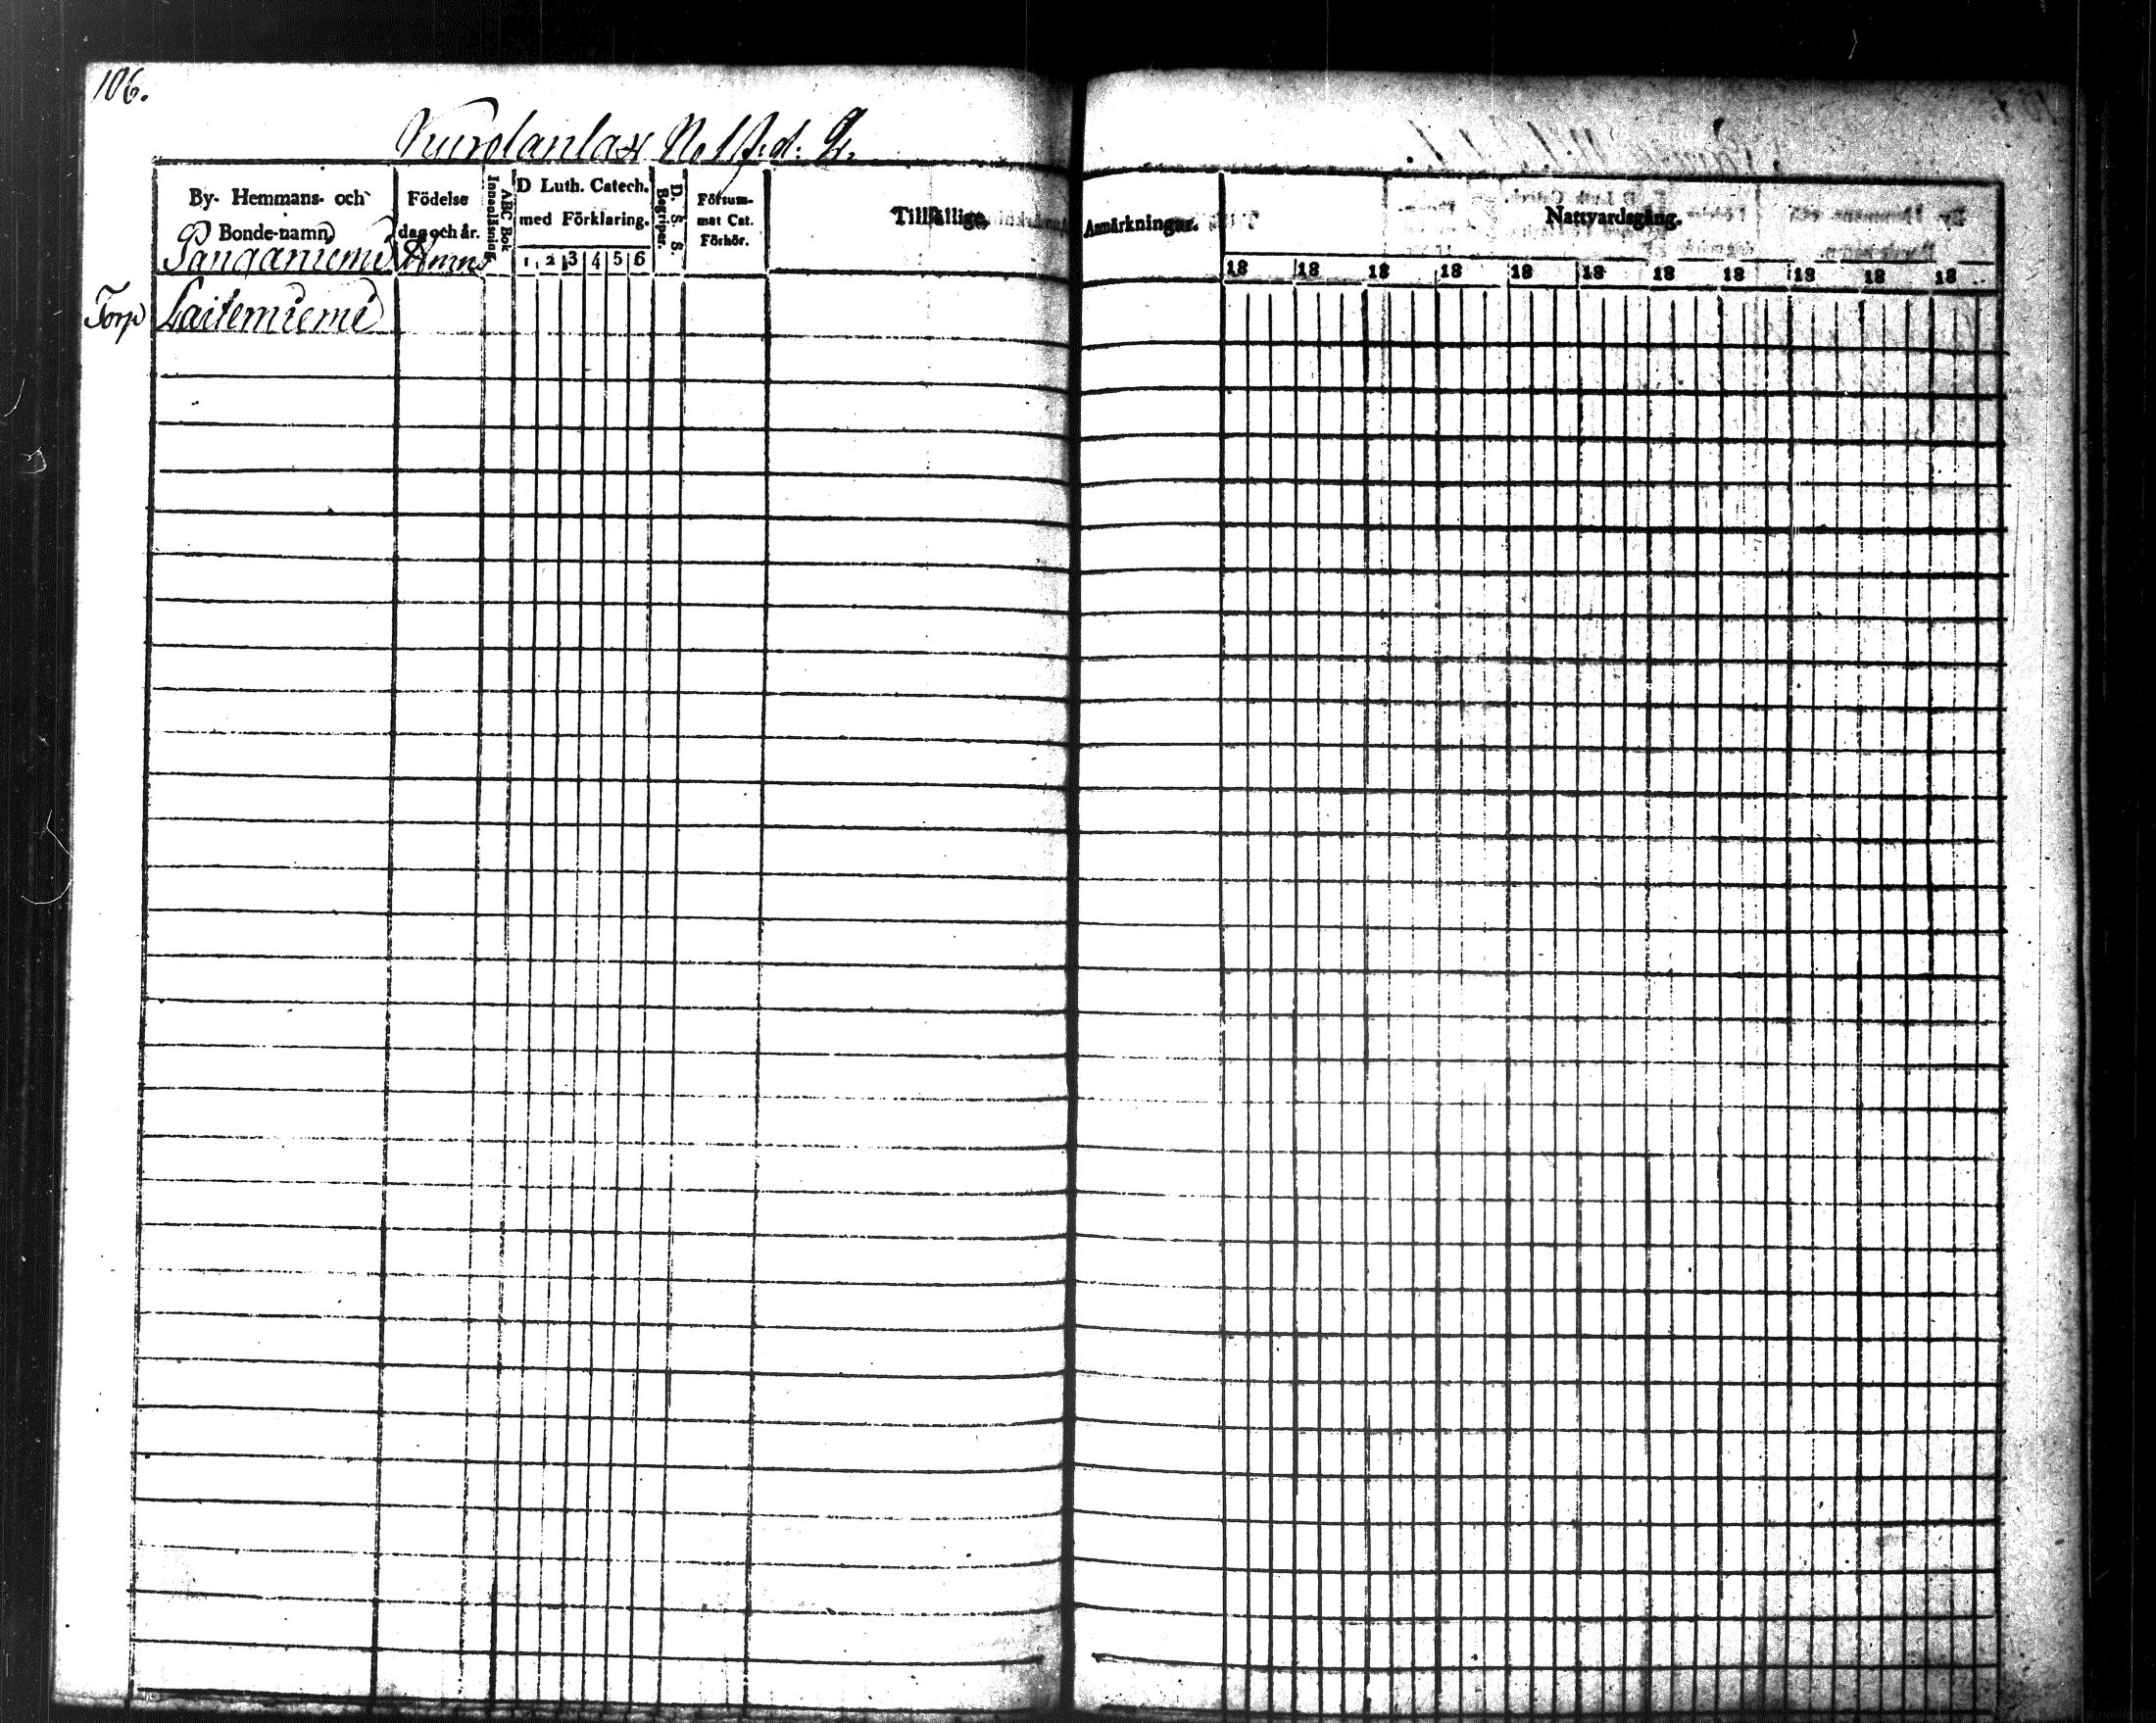 106.
No 1
By- Hemmans- och Bonde-namn,
Födelse dag och år.
ABC Bok Innanläsning.
D Luth. Catech. med Förklaring.
1 2 3 4 5 6
D. S. S. Begriper.
Försum- mat Cat. Förhör.
Tillfällige
Anmärkningar.
Nattvardsgång.
18 18 18 18 18 18 18 18 18 18 18
Panganiemi Hmns
Torp Laitemiemi